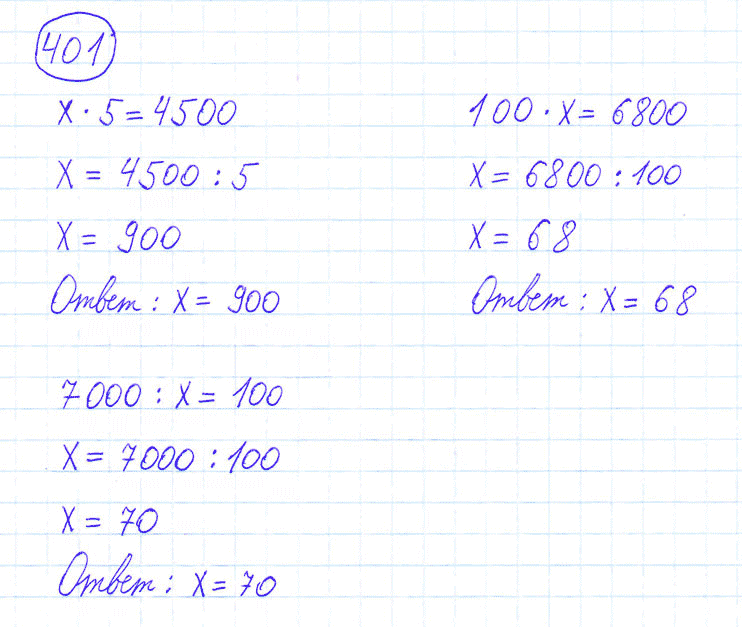 401
x · 5 = 4500
x = 4500 : 5
x = 900
Ответ : x = 900
100 · x = 6800
x = 6800 : 100
x = 68
Ответ : x = 68
7000 : x = 100
x = 7000 : 100
x = 70
Ответ : x = 70